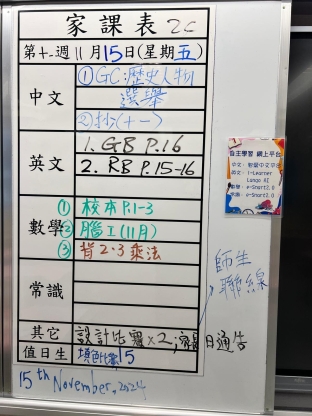 家課表 2C
第十一週11月15日(星期五)
中文
①GC:歷史人物
選舉
②抄(十一)
英文
1. GB P.16
2. RB P.15-16
數學
① 校本 P.1-3
② 腦工(11月)
③ 背2.3乘法
常識
其它
設計比賽x2,家長日通告
值日生
15
15th November, 2024
師生
聯線
自主學習 網上平台
英文: i-Learner
數學: e-Smart2.0
常識: e-Smart2.0